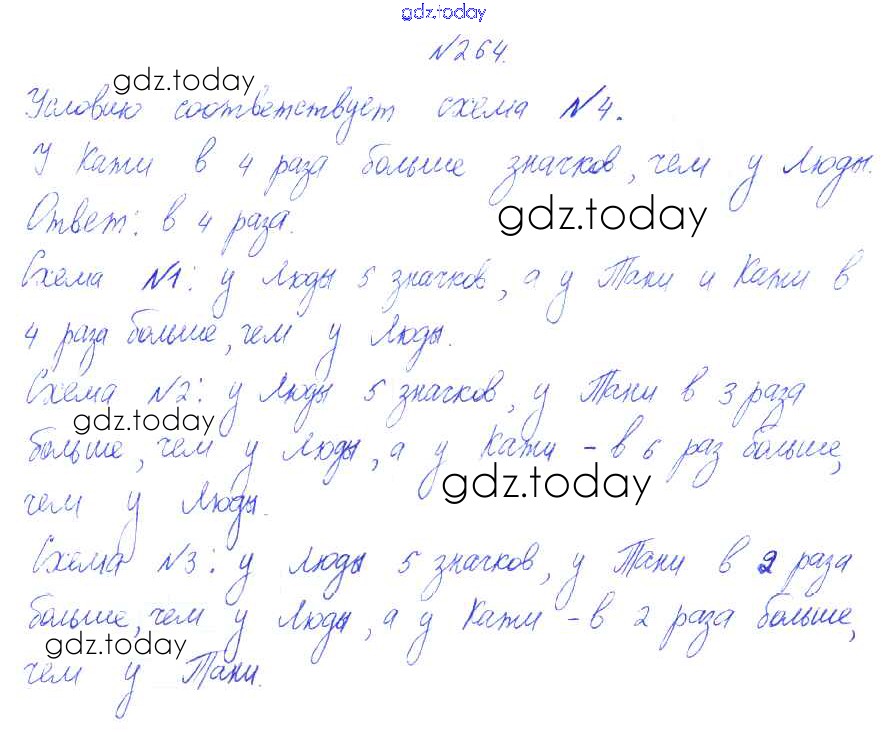 gdz.today
№264.
gdz.today
Условию соответствует схема №4.
У Кати в 4 раза больше значков, чем у Люды.
Ответ: в 4 раза.
gdz.today
Схема №1: у Люды 5 значков, а у Тани и Кати в
4 раза больше, чем у Люды.
Схема №2: у Люды 5 значков, у Тани в 3 раза
gdz.today
больше, чем у Люды, а у Кати - в 6 раз больше,
gdz.today
чем у Люды.
Схема №3: у Люды 5 значков, у Тани в 2 раза
больше, чем у Люды, а у Кати - в 2 раза больше,
gdz.today
чем у Тани.